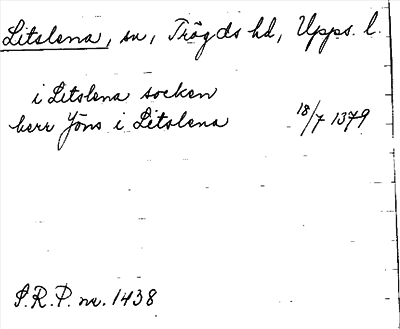 Litslena, sn, Trögds hd, Upps. l.
i Litslena socken
herr Jöns i Litslena 18/7 1379
S.R.P. nr. 1438